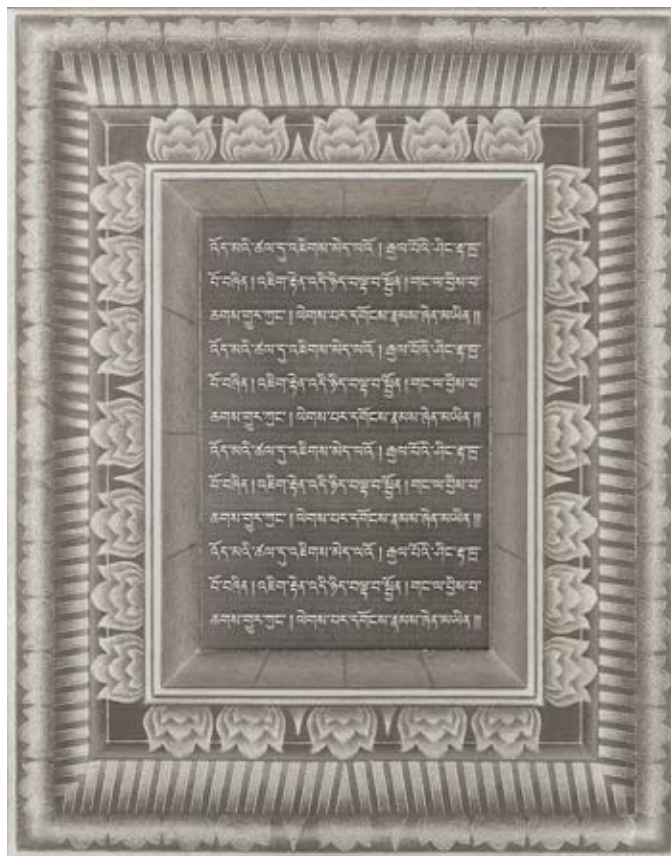 འོད་མའི་ཚལ་དུ་འཇིགས་མེད་ཡའོ། རྒྱལ་པོའི་ཤིང་རྟ་ཁྲ་
བོ་བཞིན། འཇིག་རྟེན་འདི་ཉིད་བལྟ་བ་སྦྱོན། གང་ལ་བྱིས་པ་
ཆགས་གྱུར་ཀྱང་། ལེགས་པར་དགོངས་རྣམས་ཞེན་མ་ཡིན།།
འོད་མའི་ཚལ་དུ་འཇིགས་མེད་ཡའོ། རྒྱལ་པོའི་ཤིང་རྟ་ཁྲ་
བོ་བཞིན། འཇིག་རྟེན་འདི་ཉིད་བལྟ་བ་སྦྱོན། གང་ལ་བྱིས་པ་
ཆགས་གྱུར་ཀྱང་། ལེགས་པར་དགོངས་རྣམས་ཞེན་མ་ཡིན།།
འོད་མའི་ཚལ་དུ་འཇིགས་མེད་ཡའོ། རྒྱལ་པོའི་ཤིང་རྟ་ཁྲ་
བོ་བཞིན། འཇིག་རྟེན་འདི་ཉིད་བལྟ་བ་སྦྱོན། གང་ལ་བྱིས་པ་
ཆགས་གྱུར་ཀྱང་། ལེགས་པར་དགོངས་རྣམས་ཞེན་མ་ཡིན།།
འོད་མའི་ཚལ་དུ་འཇིགས་མེད་ཡའོ། རྒྱལ་པོའི་ཤིང་རྟ་ཁྲ་
བོ་བཞིན། འཇིག་རྟེན་འདི་ཉིད་བལྟ་བ་སྦྱོན། གང་ལ་བྱིས་པ་
ཆགས་གྱུར་ཀྱང་། ལེགས་པར་དགོངས་རྣམས་ཞེན་མ་ཡིན།།